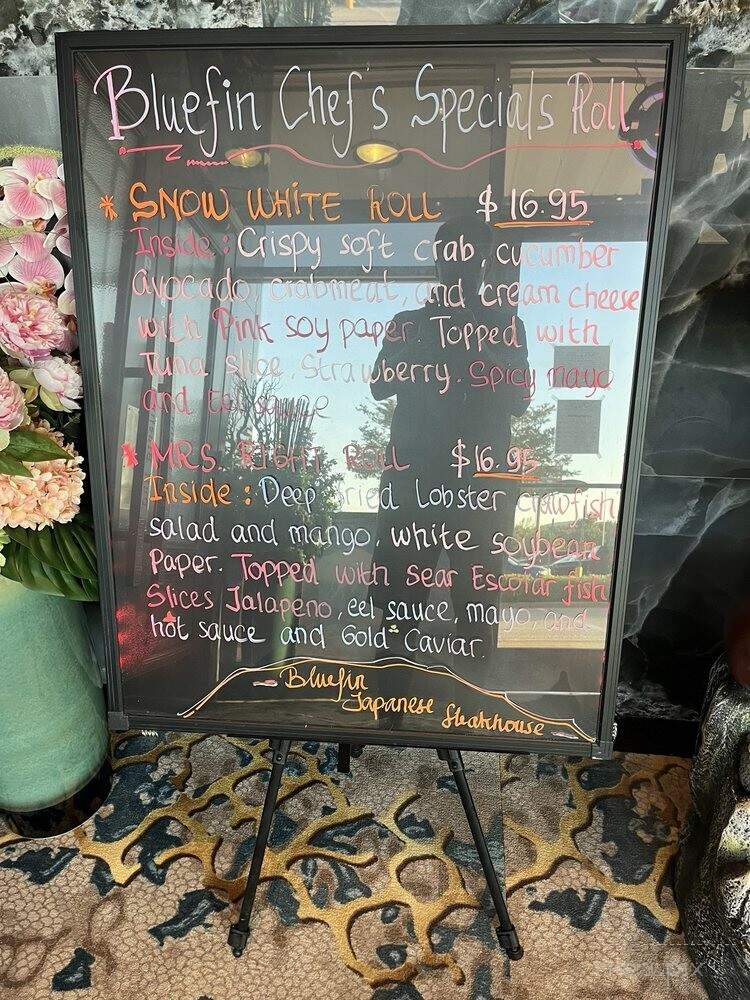 Bluefin Chef's Specials Roll
* SNOW WHITE ROLL $16.95
Inside: Crispy soft crab, cucumber
avocado, crabmeat, and cream cheese
with Pink soy paper. Topped with
Tuna slice, Strawberry. Spicy mayo
and Eel sauce
* MRS. RIGHT ROLL $16.95
Inside: Deep Fried Lobster crawfish
salad and mango, white soybean
Paper. Topped with sear Escolar fish
Slices Jalapeno, eel sauce, mayo, and
hot sauce and Gold Caviar.
Bluefin
Japanese Steakhouse